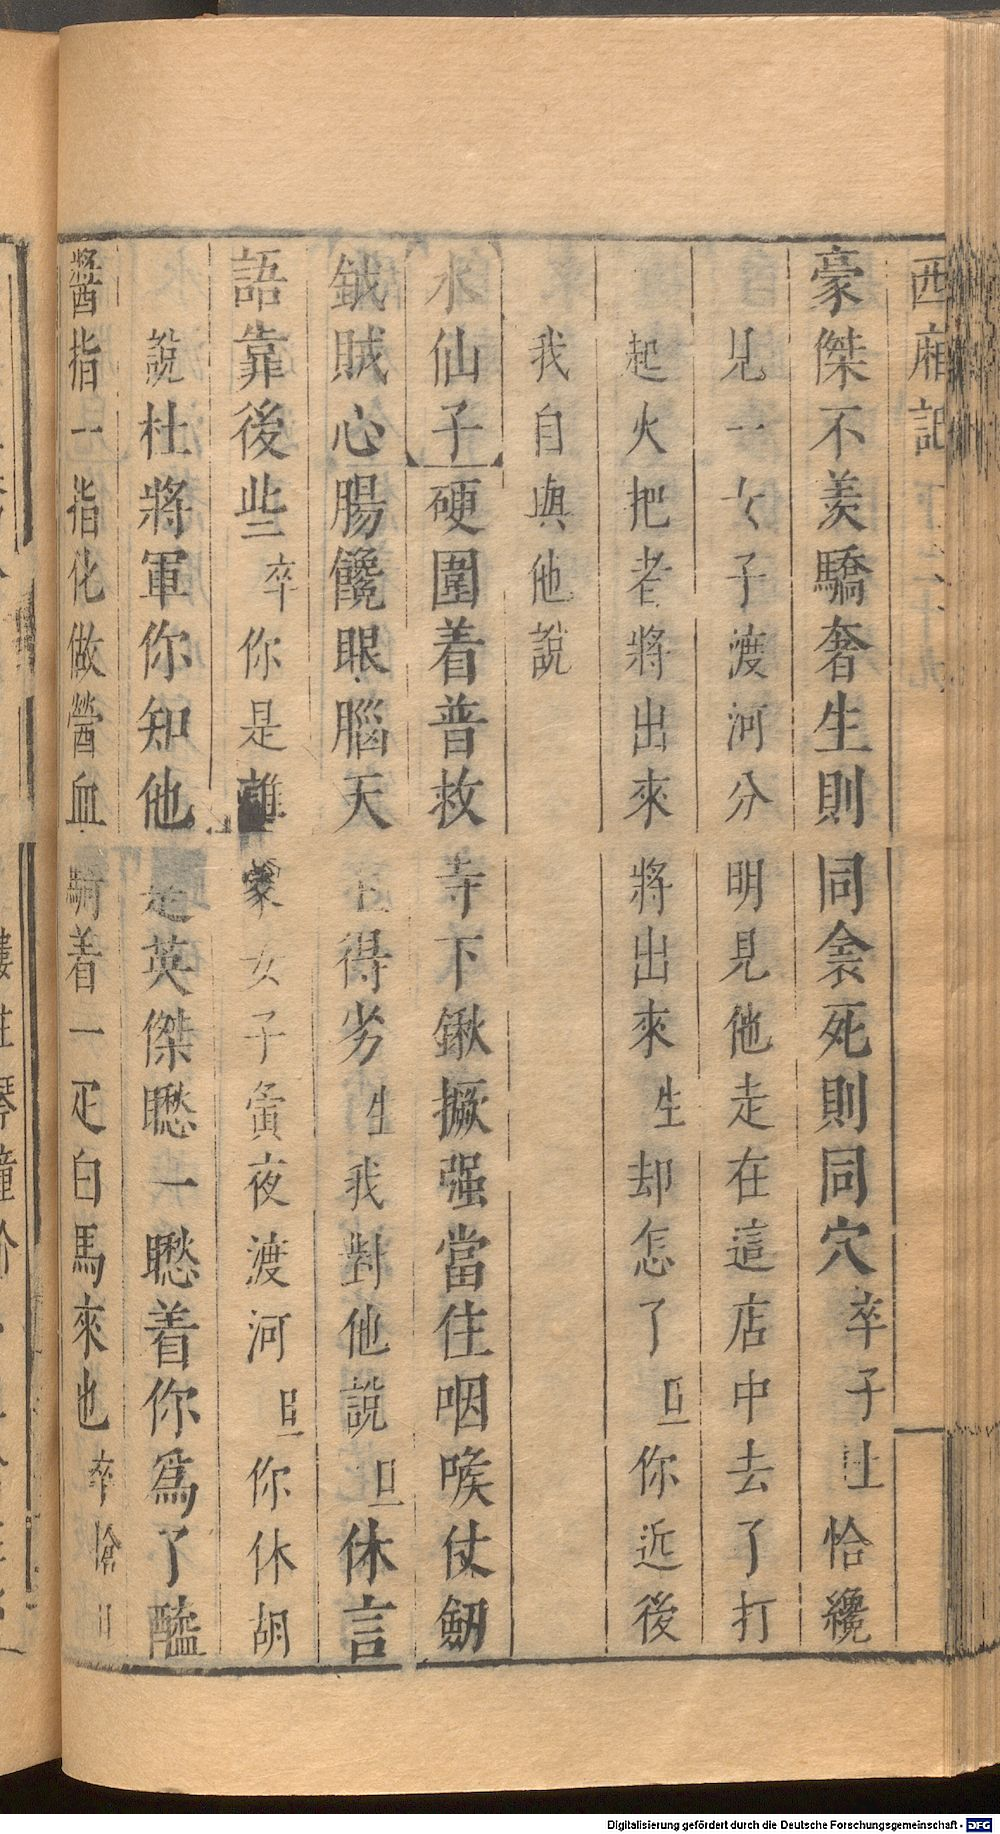 西廂記
豪傑不羡驕奢生則同衾死則同穴卒子上恰纔
見一女子渡河分明見他走在這店中去了打
起火把者將出來將出來生却怎了旦你近後
我自與他說
水仙子硬圍着普救寺下鍬撅强當住咽喉仗劒
鉞賊心腸饞眼腦天生得劣生我對他說旦休言
語靠後些卒你是誰家女子寅夜渡河旦你休胡
說杜將軍你知他是英傑瞅一瞅着你爲了醯
醬指一指化做醟血騎着一疋白馬來也卒搶旦
Digitalisierung gefördert durch die Deutsche Forschungsgemeinschaft - DFG